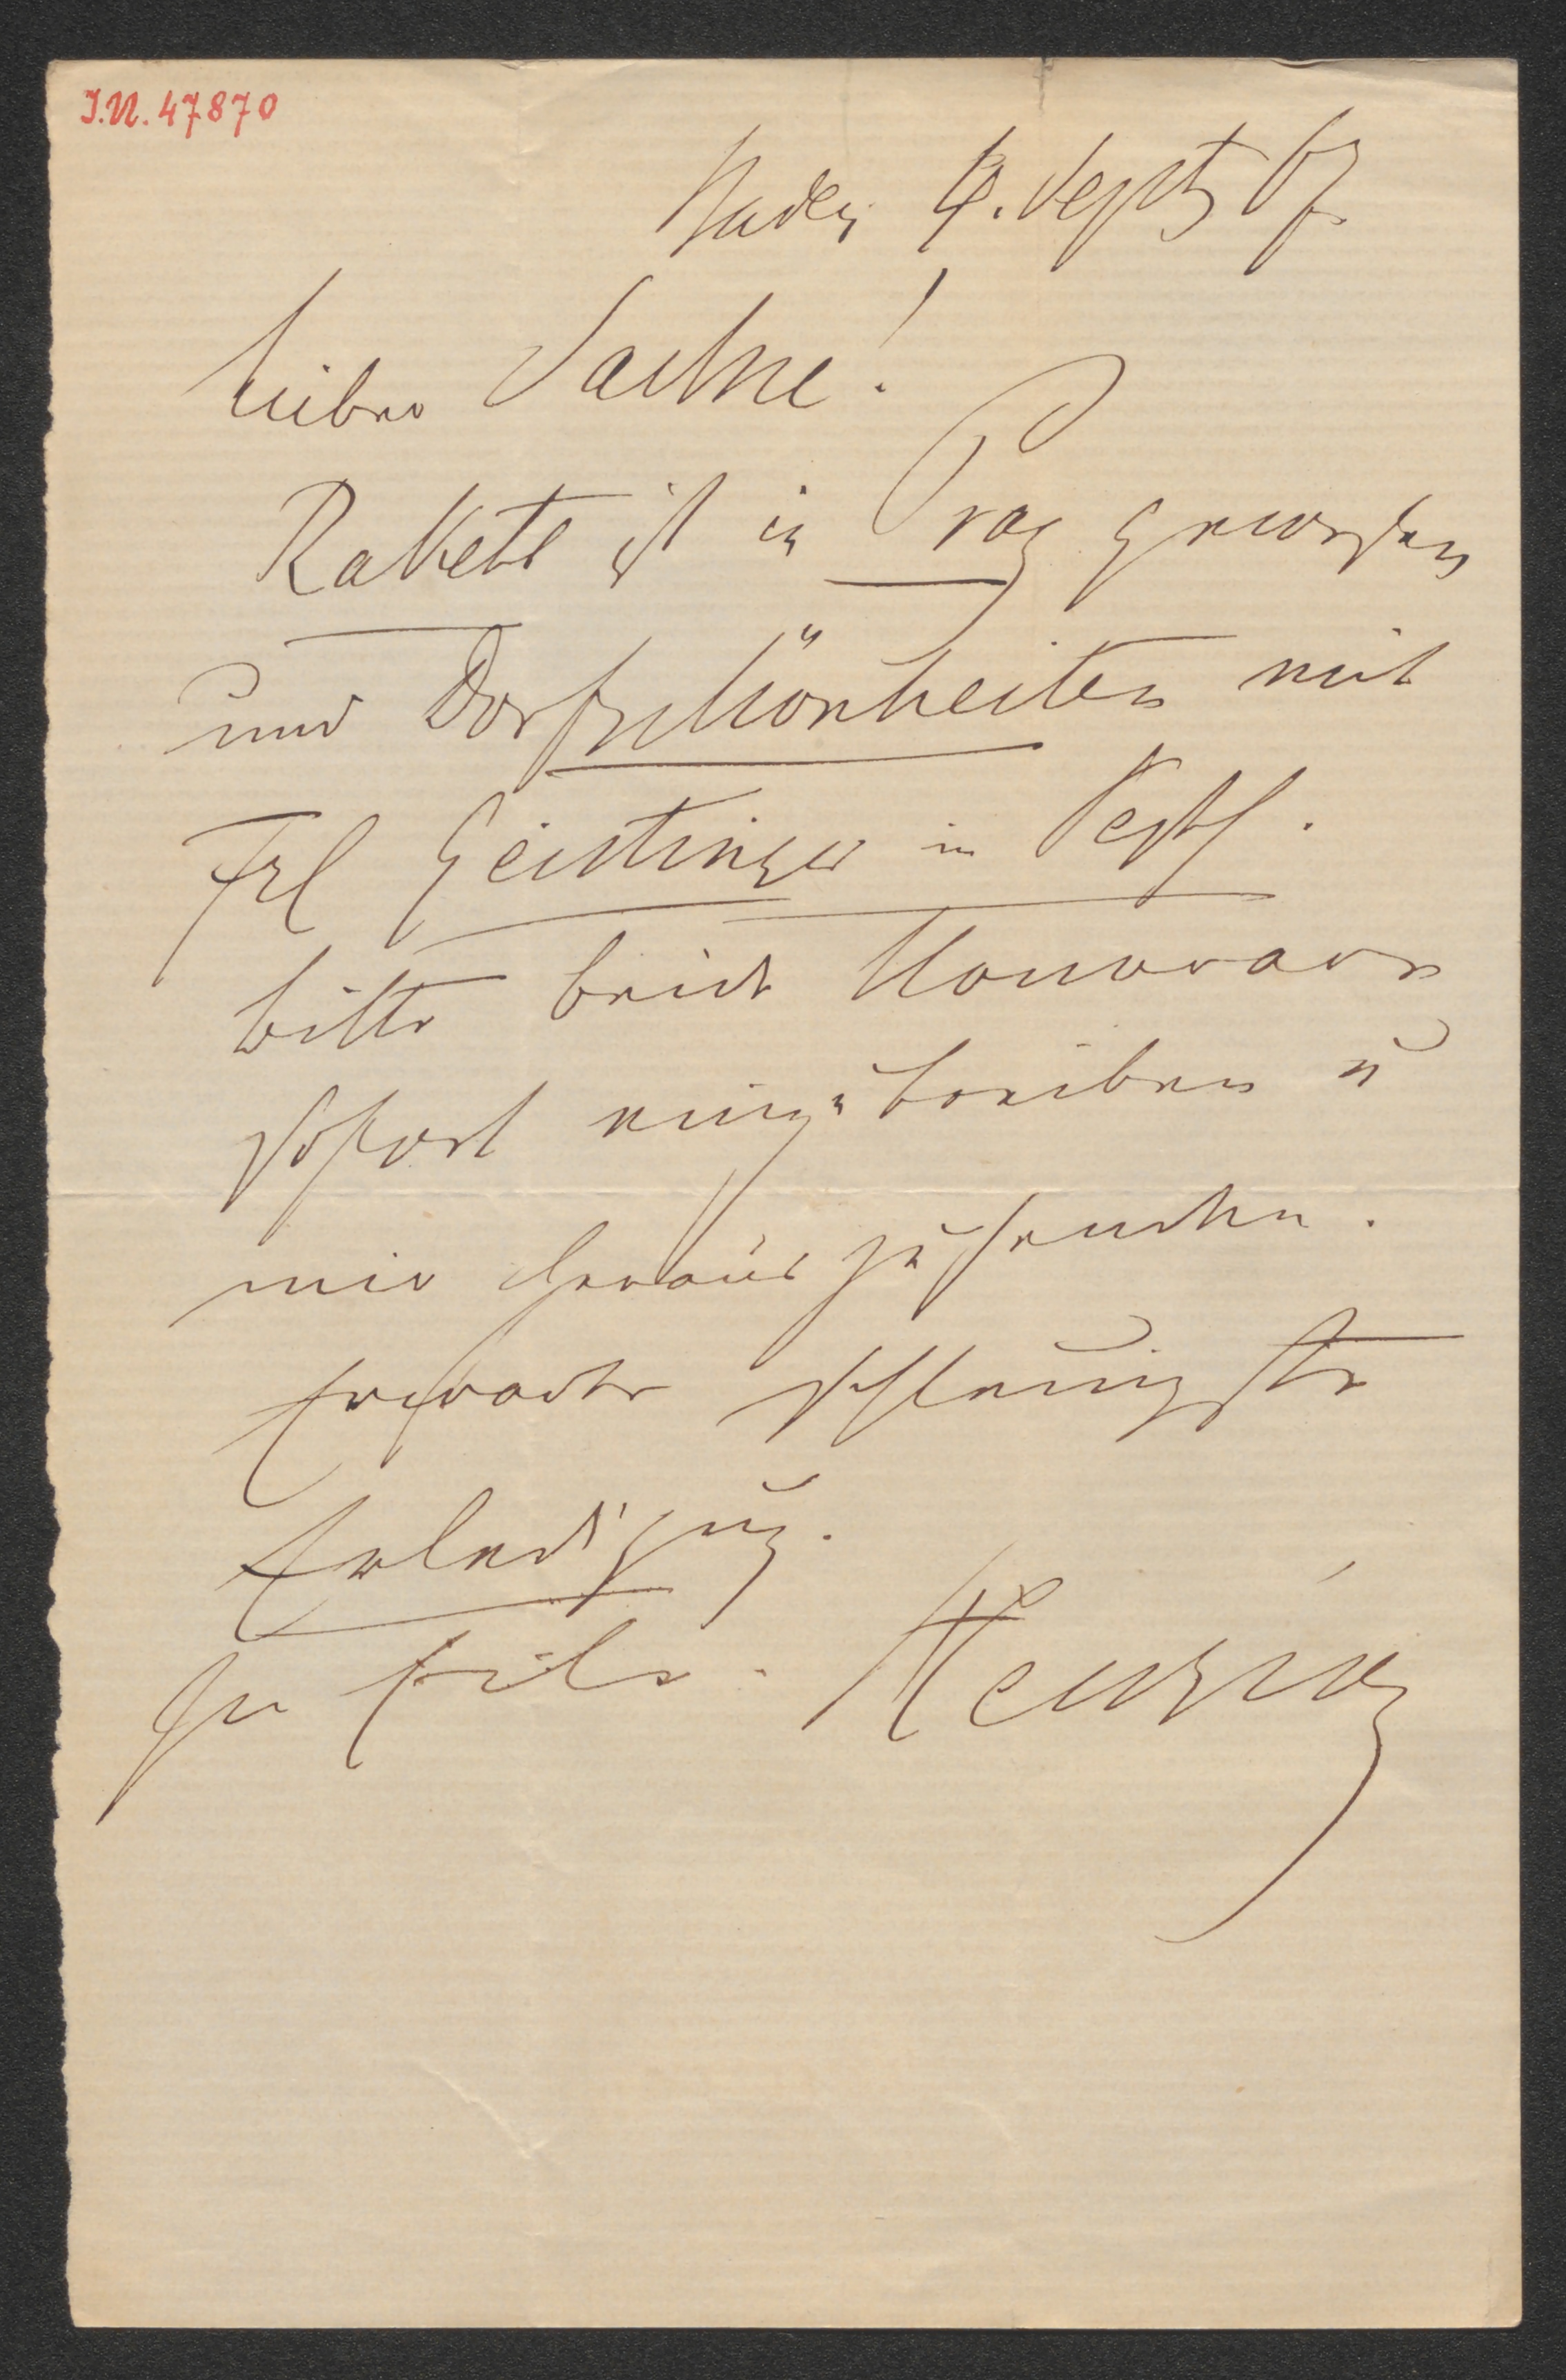 I.N. 47870
Baden 4. Sept 67.
Lieber Sachse!
Rakete ist in Prag gewesen
und Dorfschönheiten mit
Frl Geistinger in Pesth.
bitte beide Honorare
sofort einzutreiben u
mir herauszusenden.
Erwarte schleunigste
Erledigung.
In Eile.